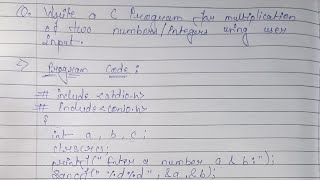 Q. Write a C Program for multiplication
of two numbers/Integers using user
input.
⇒ Program Code:
# include <stdio.h>
# include <conio.h>
{
int a, b, c;
clrscr();
printf(" Enter a number a & b:");
scanf(" %d%d", &a, &b);